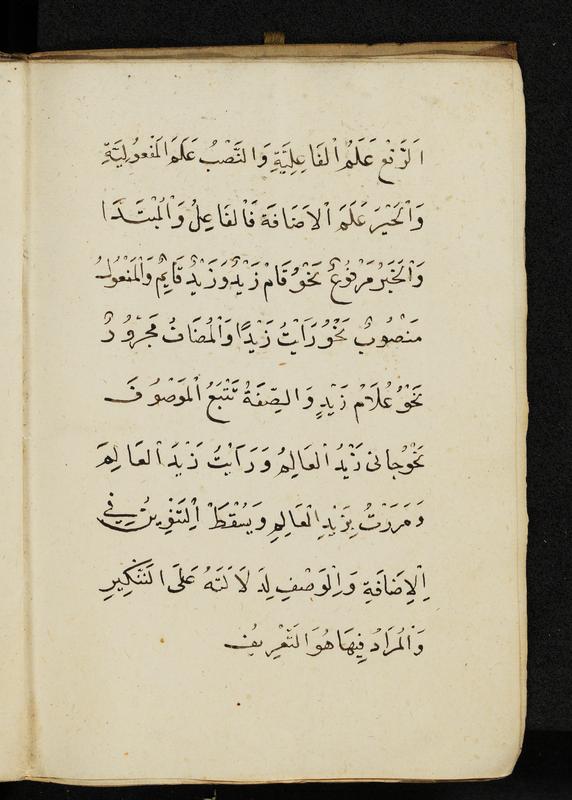 اَلرَّفْعُ عَلَمُ الْفَاعِلِيَّةِ وَالنَّصْبُ عَلَمَ الْمَفْعُولِيَّةِ
وَالْجَرُّ عَلَمَ الْاِضَافَةِ فَالْفَاعِلُ وَالْمُبْتَدَا
وَالْخَبَرُ مَرْفُوعٌ نَحْوُ قَامَ زَيْدٌ وَزَيْدٌ قَايِمٌ وَالْمَفْعُولُ
مَنْصُوبٌ نَحْوُ رَاَيْتُ زَيْدًا وَالْمُضَافُ مَجْرُورٌ
نَحْوُ غُلَامُ زَيْدٍ وَالصِّفَةُ تَتْبَعُ الْمَوْصُوفَ
نَحْوُ جَانِى زَيْدُ الْعَالِمُ وَرَاَيْتُ زَيْدَ الْعَالِمَ
وَمَرَرْتُ بِزَيْدِ الْعَالِمِ وَيَسْقُطُ التَّنْوِينُ فِي
الْاِضَافَةِ وَالْوَصْفِ لِدَلَالَتِهِ عَلَى التَّنْكِيرِ
وَالْمُرَادُ فِيهَا هُوَ التَّعْرِيفُ